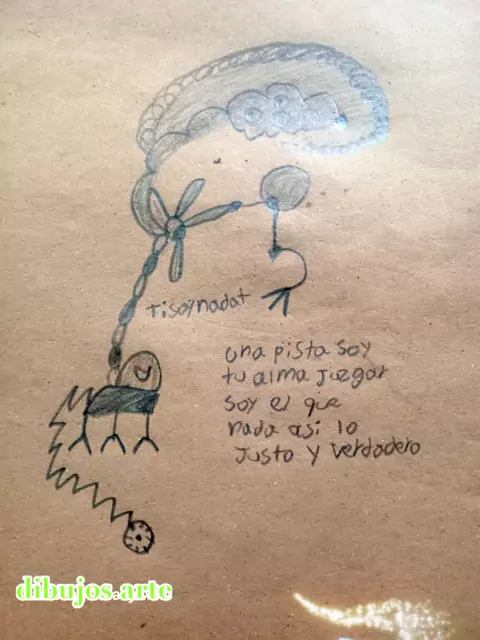 Tisoynadat
una pista soy
tu alma juegar
soy el que
nada asi lo
justo y verdadero
dibujos.arte